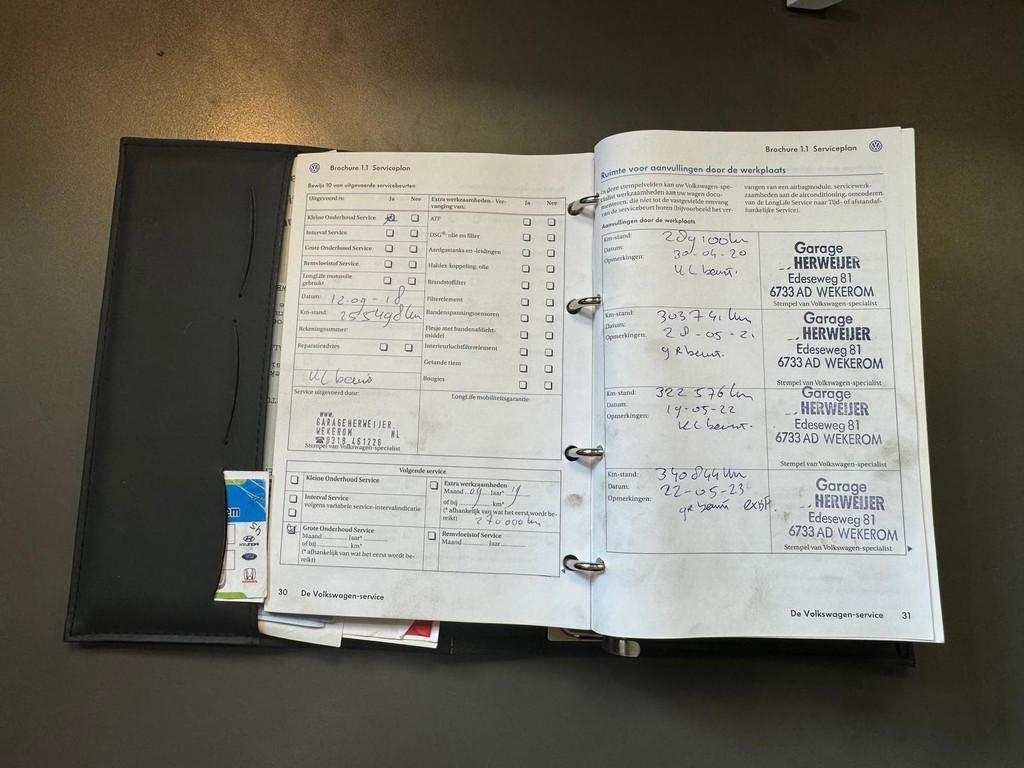 Brochure 1.1 Serviceplan
Bewijs 10 van uitgevoerde servicebeurten
Uitgevoerd is: Ja Nee
Kleine Onderhoud Service
Interval Service
Grote Onderhoud Service
Remvloeistof Service
LongLife motorolie
gebruikt
Datum: 12-09-18
Km-stand: 255498 km
Rekeningnummer:
Reparatieadvies
KL beurt
Service uitgevoerd door:
WWW.
GARAGEHERWEIJER.
WEKEROM NL
☎0318 461226
Stempel van Volkswagen-specialist
Extra werkzaamheden - Ver-
vanging van: Ja Nee
ATF
DSG®: olie en filter
Aardgastanks en -leidingen
Haldex-koppeling: olie
Brandstoffilter
Filterelement
Bandenspanningssensoren
Flesje met bandenafdicht-
middel
Interieurluchtfilterelement
Getande riem
Bougies
LongLife mobiliteitsgarantie:
Volgende service
Kleine Onderhoud Service
Interval Service
volgens variabele service-intervalindicatie
Grote Onderhoud Service
Maand Jaar*
of bij km*
(* afhankelijk van wat het eerst wordt be-
reikt)
Extra werkzaamheden
Maand 09 Jaar* 19
of bij km*
(* afhankelijk van wat het eerst wordt be-
reikt) 270000 km
Remvloeistof Service
Maand Jaar
30 De Volkswagen-service
Brochure 1.1 Serviceplan
Ruimte voor aanvullingen door de werkplaats
In deze stempelvelden kan uw Volkswagen-spe-
cialist werkzaamheden aan uw wagen docu-
menteren, die niet tot de vastgestelde omvang
van de servicebeurt horen (bijvoorbeeld het ver-
vangen van een airbagmodule, servicewerk-
zaamheden aan de airconditioning, omcoderen
van de LongLife Service naar Tijd- of afstandaf-
hankelijke Service).
Aanvullingen door de werkplaats
Km-stand: 289100 km
Datum: 30-04-20
Opmerkingen: KL beurt.
Garage
HERWEIJER
Edeseweg 81
6733 AD WEKEROM
Stempel van Volkswagen-specialist
Km-stand: 303741 km
Datum: 28-05-21
Opmerkingen: gR beurt.
Garage
HERWEIJER
Edeseweg 81
6733 AD WEKEROM
Stempel van Volkswagen-specialist
Km-stand: 322576 km
Datum: 19-05-22
Opmerkingen: KL beurt.
Garage
HERWEIJER
Edeseweg 81
6733 AD WEKEROM
Stempel van Volkswagen-specialist
Km-stand: 340844 km
Datum: 22-05-23
Opmerkingen: gR beurt
Garage
HERWEIJER
Edeseweg 81
6733 AD WEKEROM
Stempel van Volkswagen-specialist
De Volkswagen-service 31
HYUNDAI
HONDA